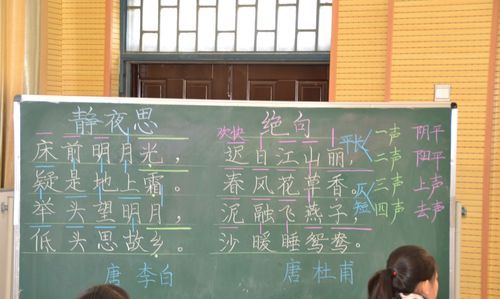 静夜思
床前明月光，
疑是地上霜。
举头望明月，
低头思故乡。
唐 李白
绝句
欢快
迟日江山丽，
春风花草香。
泥融飞燕子，
沙暖睡鸳鸯。
唐 杜甫
平长
仄短
一声 阴平
二声 阳平
三声 上声
四声 去声